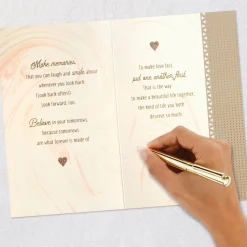 Make memories
that you can laugh and smile about
whenever you look back
(look back often).
Look forward, too.
Believe in your tomorrows,
because tomorrows
are what forever is made of.
To make love last,
put one another first.
That is the way
to make a beautiful life together,
the kind of life you both
deserve so much.